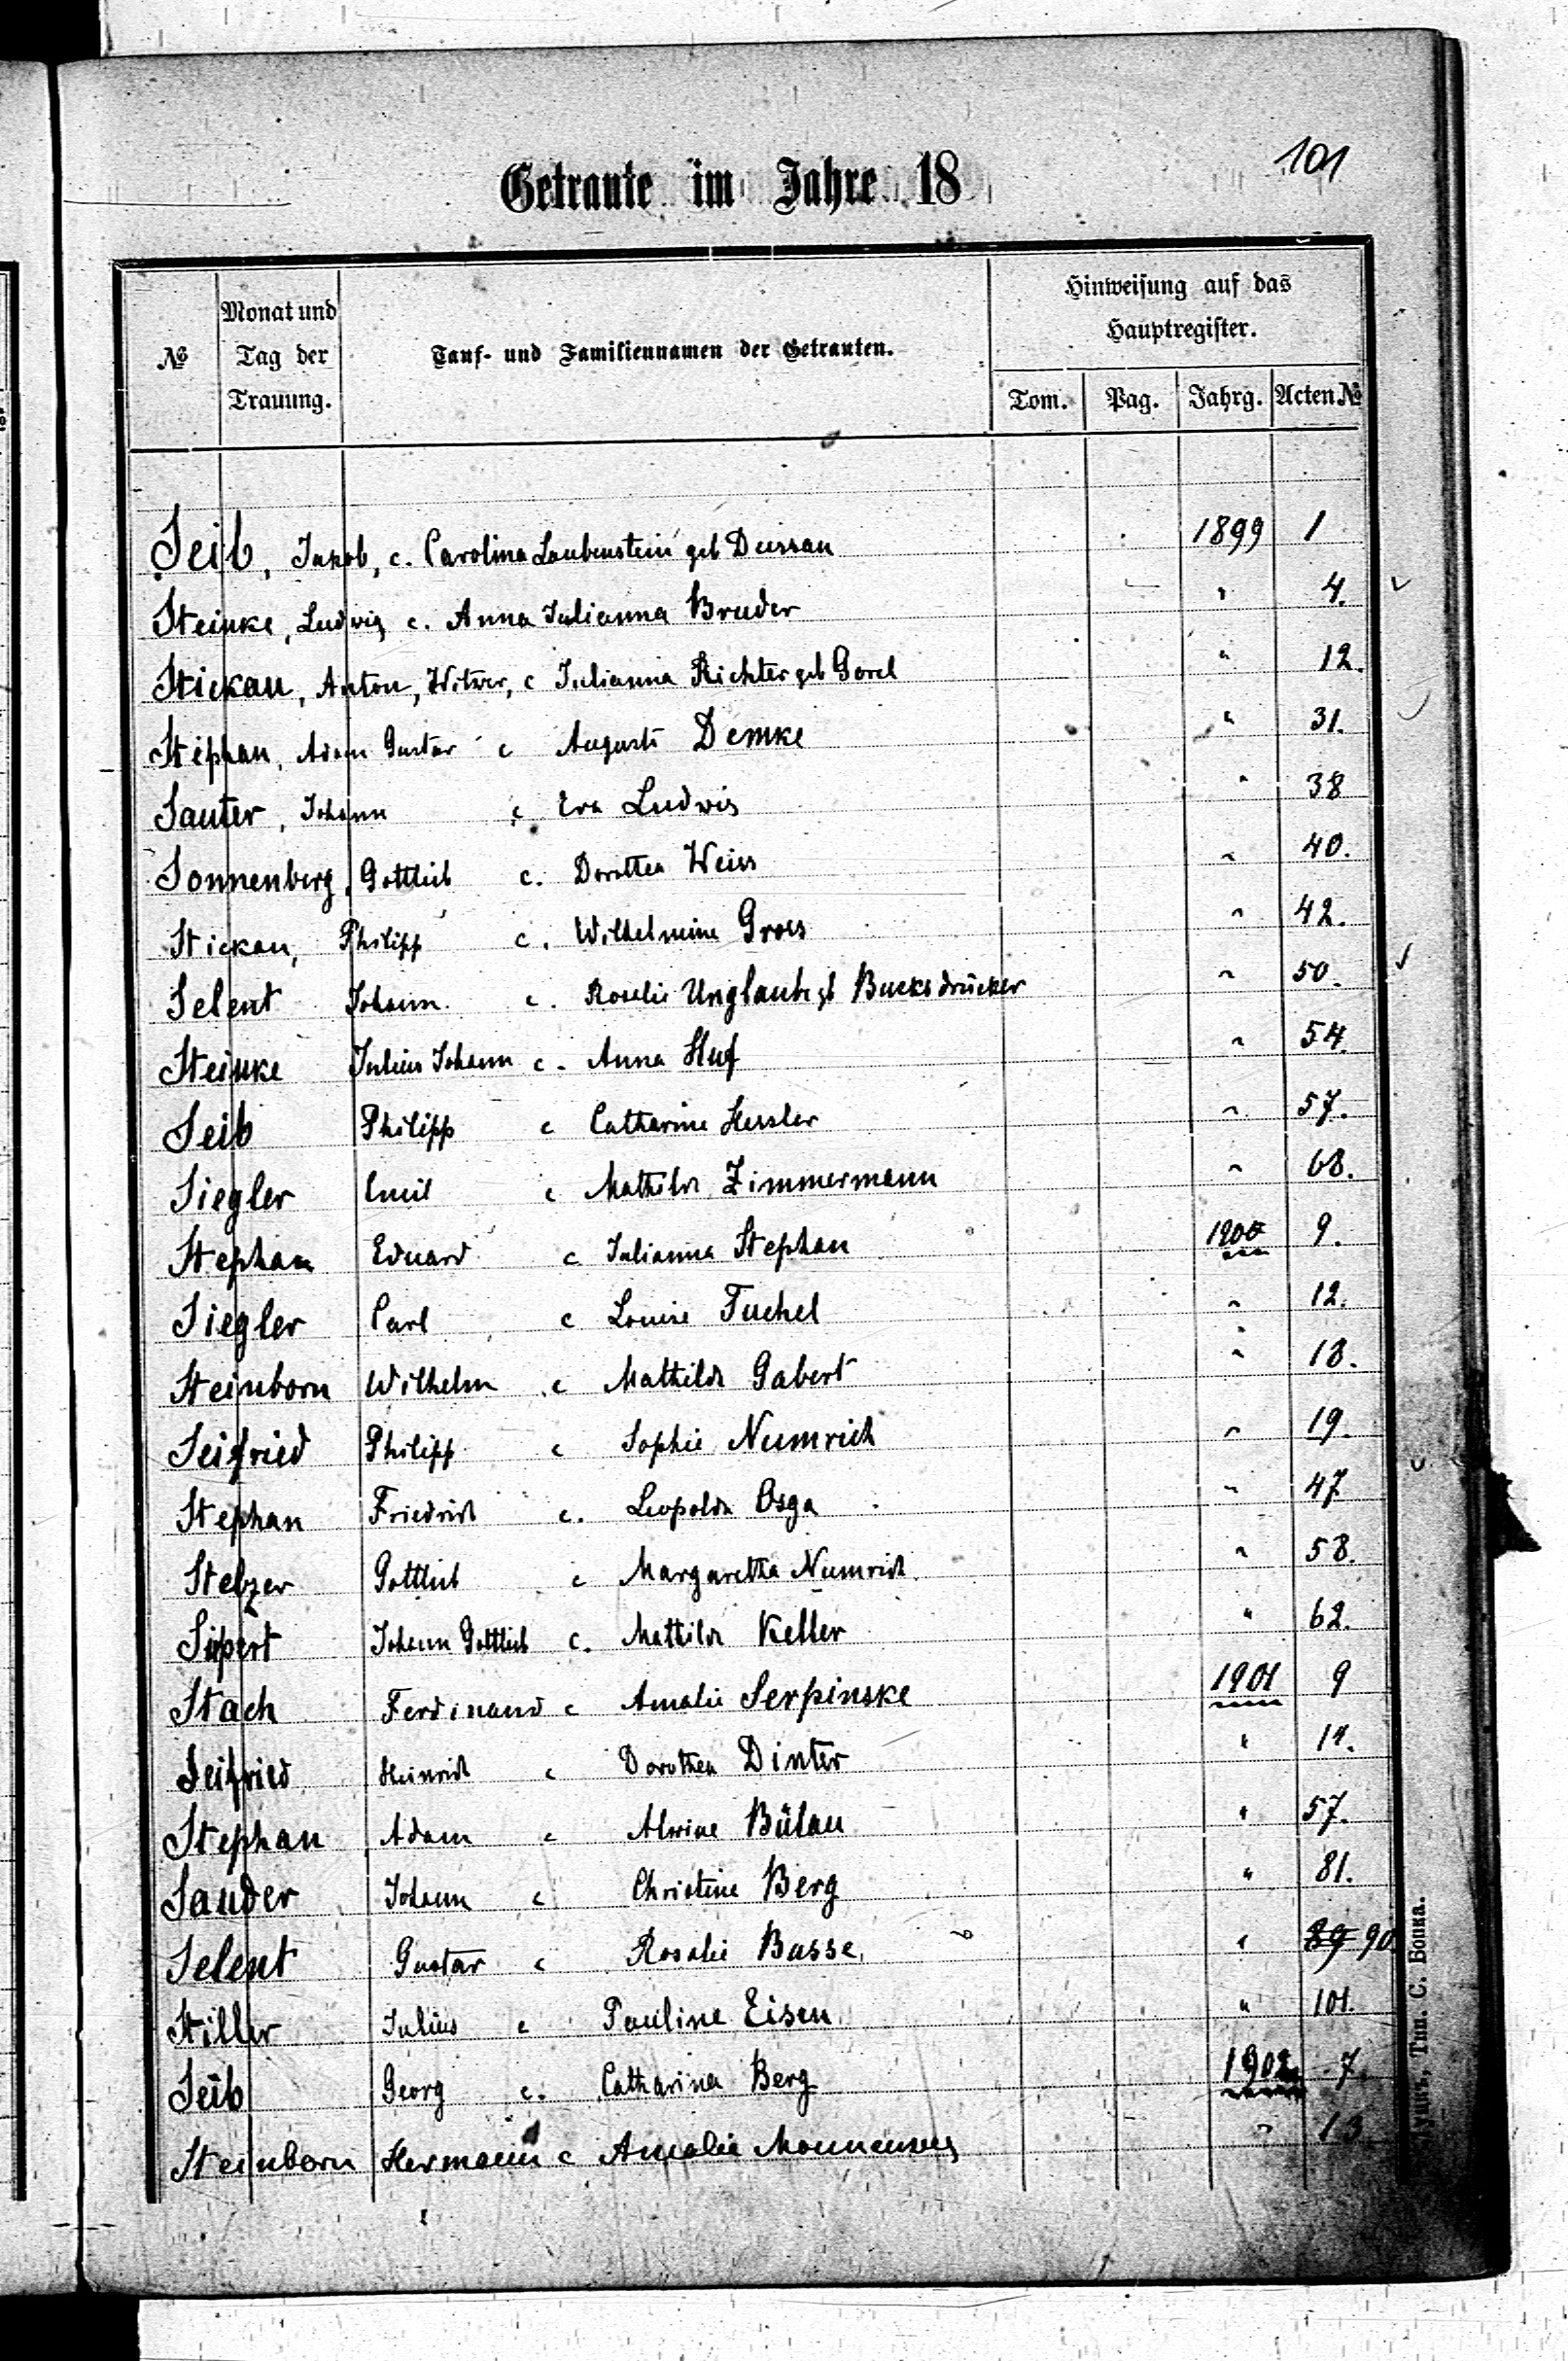 101
Getraute im Jahre 18
№
Monat und Tag der Trauung.
Tauf- und Familiennamen der Getrauten.
Hinweisung auf das Hauptregister.
Tom. Pag. Jahrg. Acten №
Seib, Jakob, c. Carolina Laubenstein geb Dessau 1899 1
Steinke, Ludwig c. Anna Julianna Bruder " 4.
Stickau, Anton, Witwer, c Julianna Richter geb Gorel " 12.
Stephan, Adam Gustav c Auguste Demke " 31.
Sauter, Johann c Eva Ludwig " 38
Sonnenberg, Gottlieb c. Dorothea Weiss " 40.
Stickau, Philipp c. Wilhelmine Gross " 42.
Selent Johann c. Rosalie Unglaube gb Bucksdrücker " 50.
Steinke Julius Johann c. Anna Huf " 54.
Seib Philipp c Catharine Hessler " 57.
Siegler Emil c Mathilde Zimmermann " 68.
Stephan Eduard c Julianna Stephan 1900 9.
Siegler Carl c Louise Tuchel " 12.
Steinborn Wilhelm c Mathilde Gabert " 18.
Seifried Philipp c Sophie Numrich " 19.
Stephan Friedrich c. Leopolde Osga " 47
Stelzer Gottlieb c Margaretha Numrich " 58.
Sippert Johann Gottlieb c. Mathilde Keller " 62.
Stach Ferdinand c Amalie Serpinske 1901 9
Seifried Heinrich c Dorothea Dinter " 11.
Stephan Adam c Alwine Bülau " 57.
Sauder Johann c Christine Berg " 81.
Selent Gustav c Rosalie Busse " 89 90
Stiller Julius c Pauline Eisen " 101.
Seib Georg c. Catharina Berg 1902 7.
Steinborn Hermann c Amalie " 13
Тип. С. Бонка.